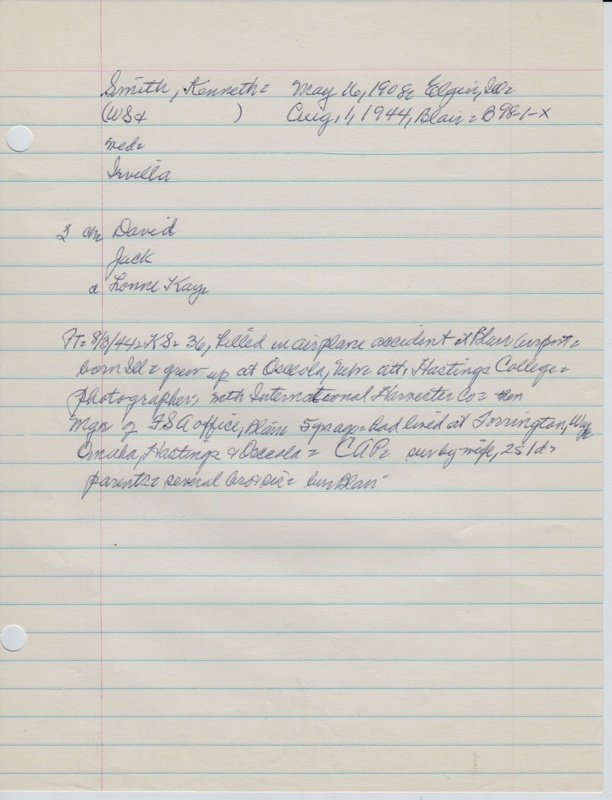 Smith, Kenneth= May 16, 1908= Elgin, Ill=
(WS& ) Aug, 1, 1944, Blair= B98-1-X
med=
Irvilla
3 ch= David
Jack
a Lonne Kay=
T= 8/3/44= KS= 36, killed in airplane accident at Blair airport=
born Ill= grew up at Osceola, Nebr= att, Hastings College=
photographer, with International Harvester Co= then
Mgr of FSA office, Blair 5 yr ago= had lived at Torrington, Wy=
Omaha, Hastings & Osceola= CAP= sur by wife, 2s 1d=
parents= several bro=sis= bur Blair